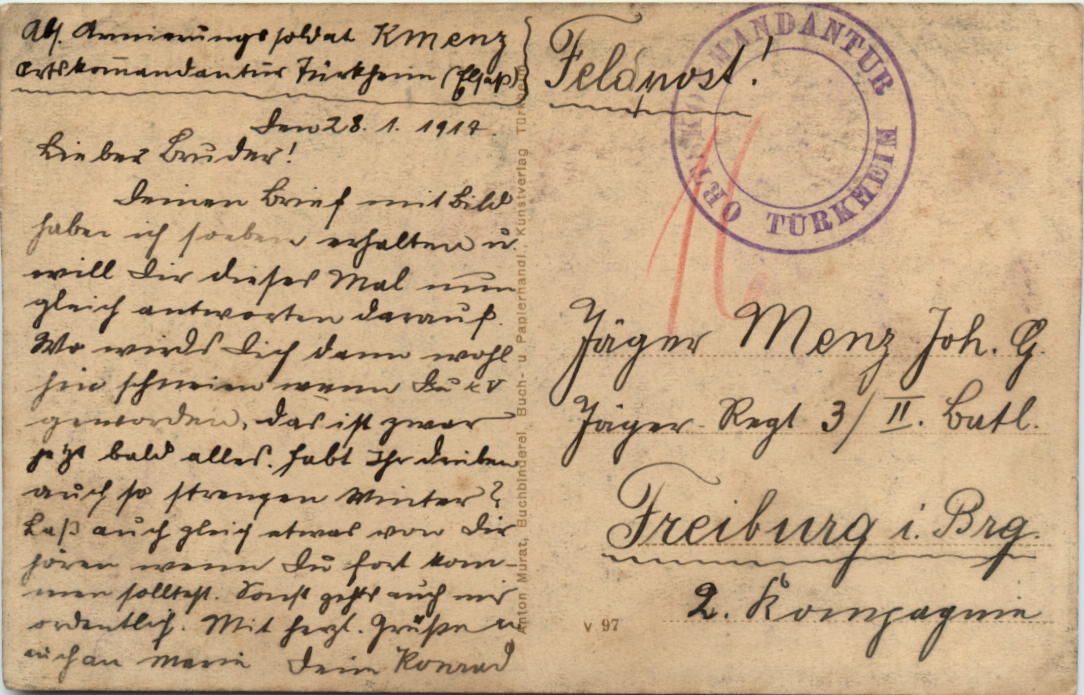 Abs. Armierungssoldat K Menz
Ortskommandantur Türkheim (Elsaß)
Den 28. 1. 1917.
Lieber Bruder!
Deinen Brief mit Bild
habe ich soeben erhalten u.
will Dir dieses Mal nun
gleich antworten darauf.
Wo wirds Dich dann wohl
hin schneien wenn Du kv
geworden, das ist zwar
jetzt bald alles. Habt Ihr drüben
auch so strengen Winter?
Laß auch gleich etwas von Dir
hören wenn Du fort kom-
men solltest. Sonst gehts auch mir
ordentlich. Mit herzl. Grüße
auch an Marie Dein Konrad
Anton Murat, Buchbinderei, Buch- u. Papierhandl., Kunstverlag
v 97
Feldpost!
KOMMANDANTUR
TÜRKHEIM
Jäger Menz Joh. G.
Jäger-Regt 3/II. Batl.
Freiburg i. Brg.
2. Kompagnie